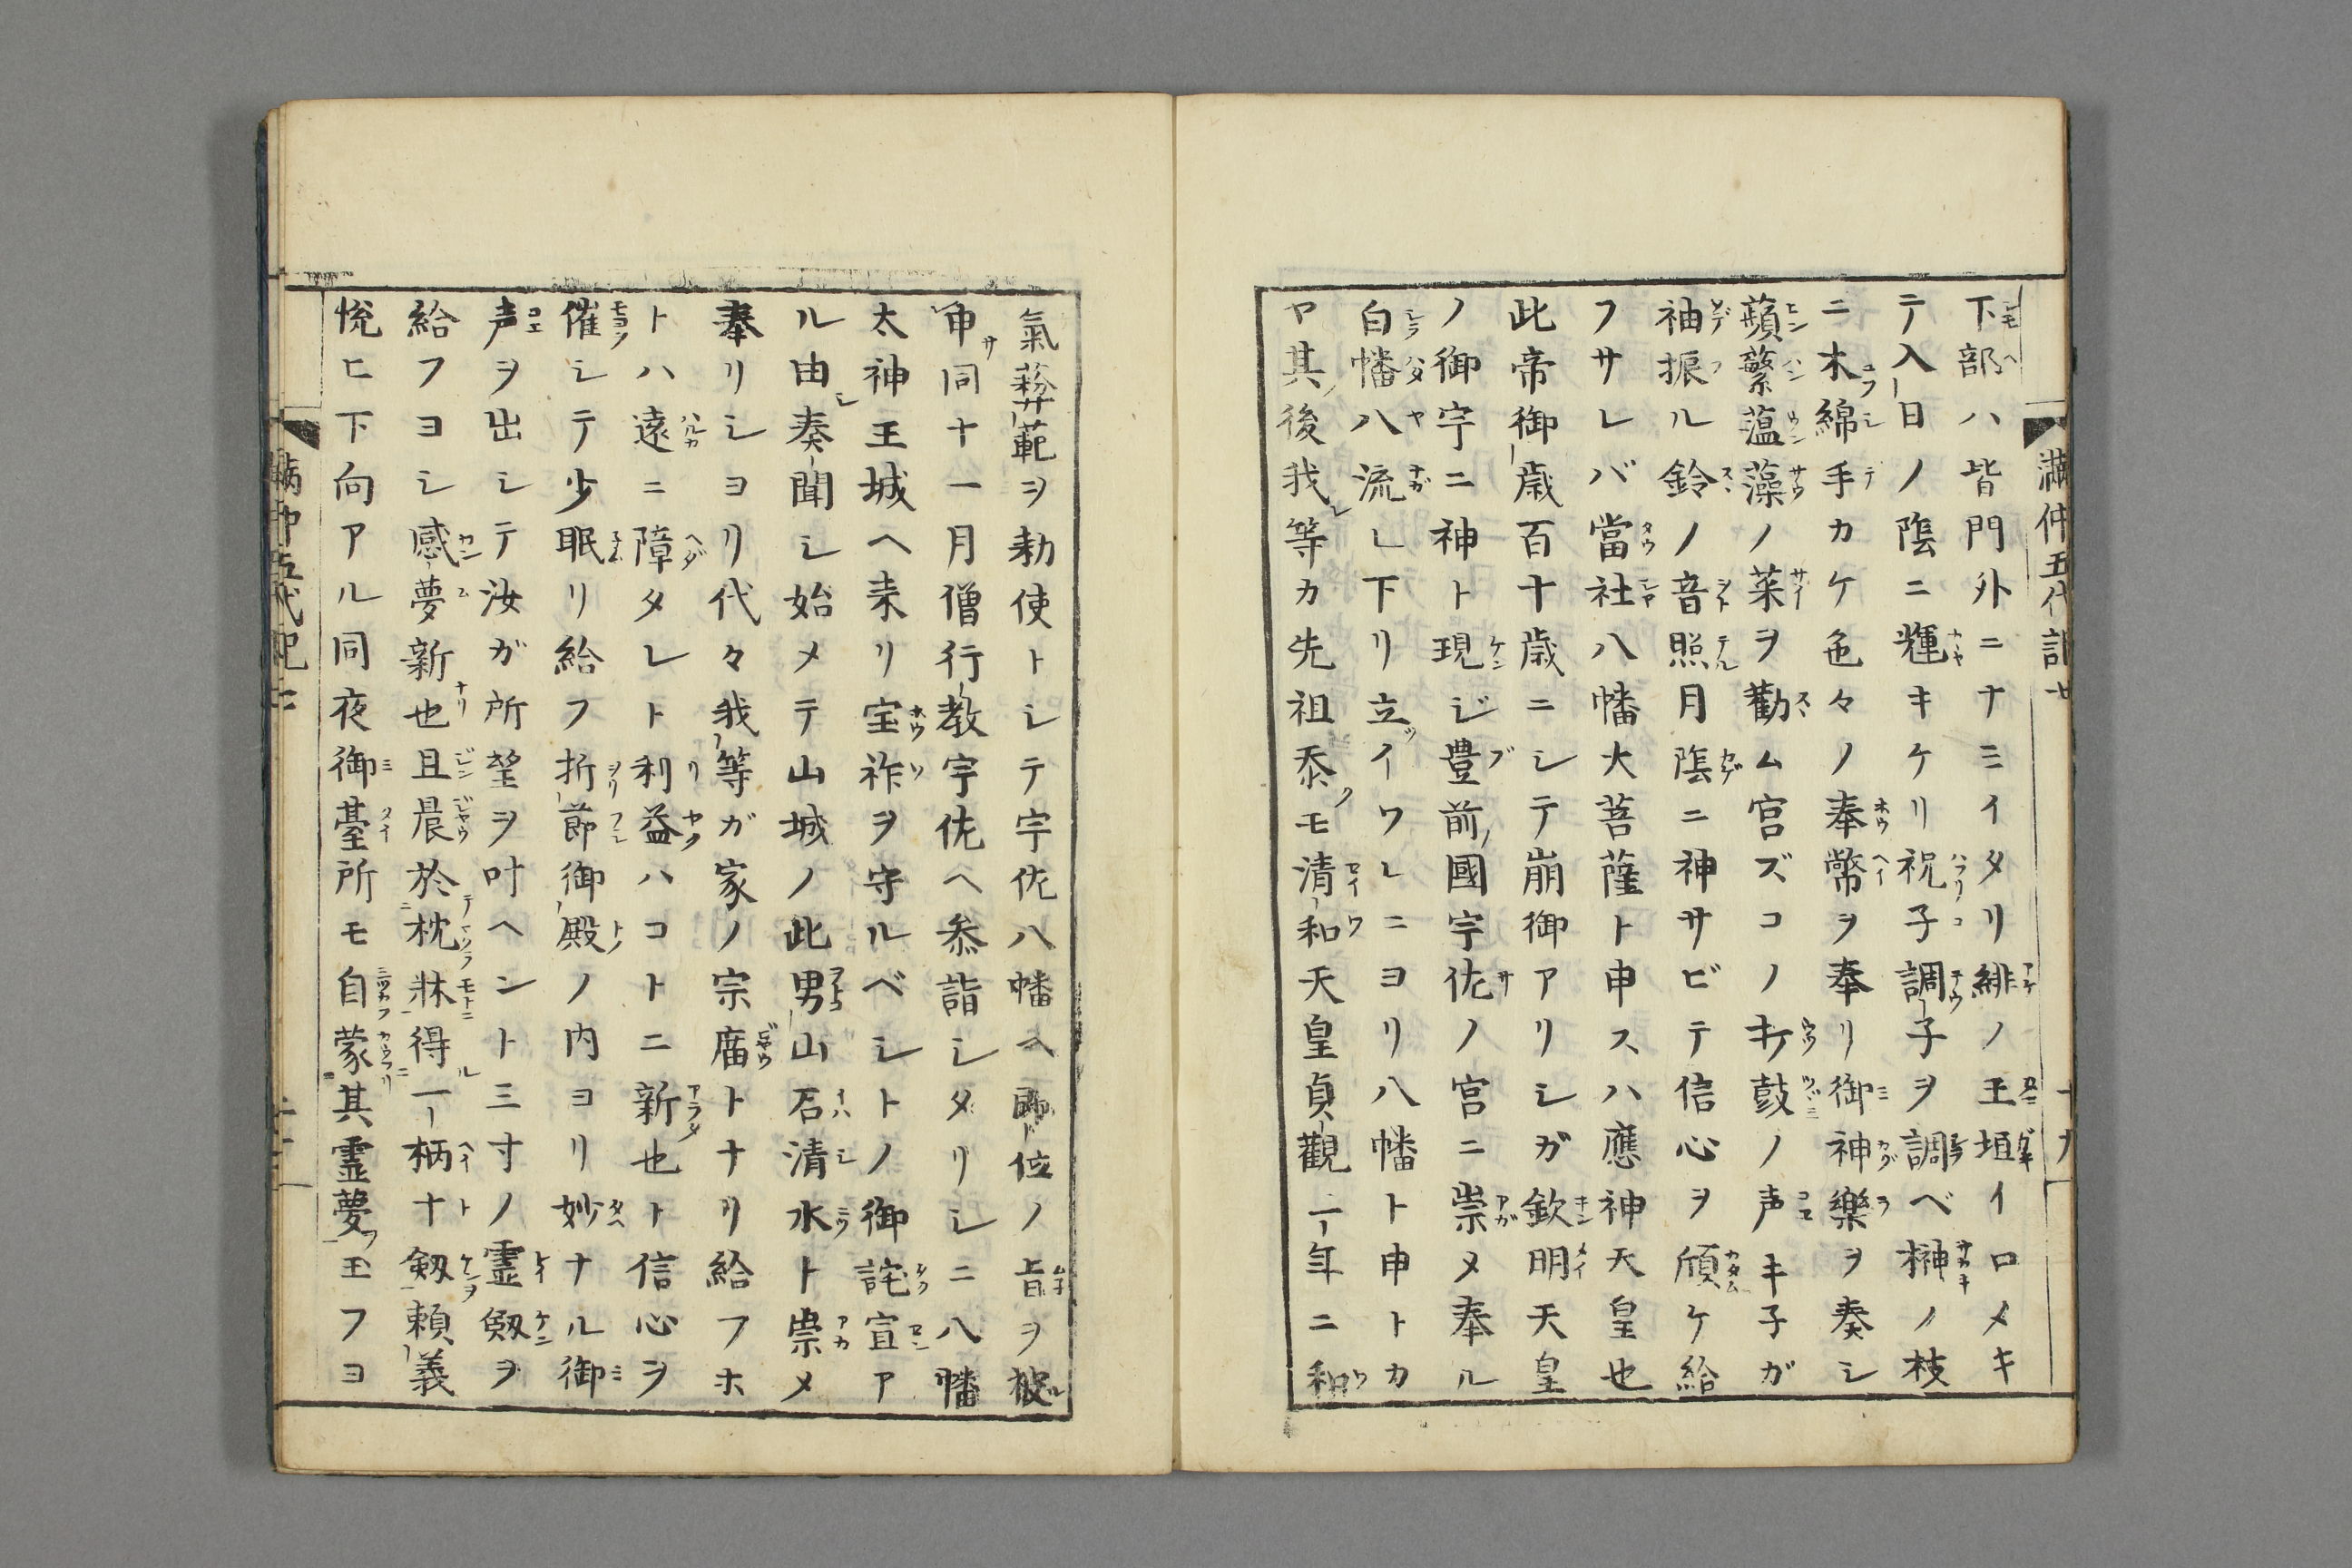 下部ハ皆門外ニナミイタリ緋ノ玉垣イロメキ
テ入日ノ陰ニ輝キケリ祝子調子ヲ調ベ榊ノ枝
ニ木綿手カケ色々ノ奉幣ヲ奉リ御神樂ヲ奏シ
蘋蘩薀藻ノ菜ヲ勸ム宮ズコノ打鼓ノ声キ子ガ
袖振ル鈴ノ音照月陰ニ神サビテ信心ヲ傾ケ給
フサレバ當社八幡大菩薩ト申スハ應神天皇也
此帝御歳百十歳ニシテ崩御アリシガ欽明天皇
ノ御宇ニ神ト現ジ豊前國宇佐ノ宮ニ崇メ奉ル
白幡八流レ下リ立イワレニヨリ八幡ト申トカ
ヤ其後我等カ先祖忝モ清和天皇貞觀二年ニ和
滿仲五代記七
十九
氣蒜範ヲ勅使トシテ宇佐八幡ヘ即位ノ旨ヲ被
申同十一月僧行教宇佐ヘ参詣シタリシニ八幡
太神王城ヘ来リ宝祚ヲ守ルベシトノ御詫宣ア
ル由奏聞シ始メテ山城ノ此男山石清水ト崇メ
奉リシヨリ代々我等ガ家ノ宗廟トナリ給フホ
トハ遠ニ障タレト利益ハコトニ新也ト信心ヲ
催シテ少眠リ給フ折節御殿ノ内ヨリ妙ナル御
声ヲ出シテ汝ガ所望ヲ叶ヘント三寸ノ霊劔ヲ
給フヨシ感夢新也且晨於枕牀得一柄十劔頼義
悦ヒ下向アル同夜御䑓所モ自蒙其霊夢玉フヨ